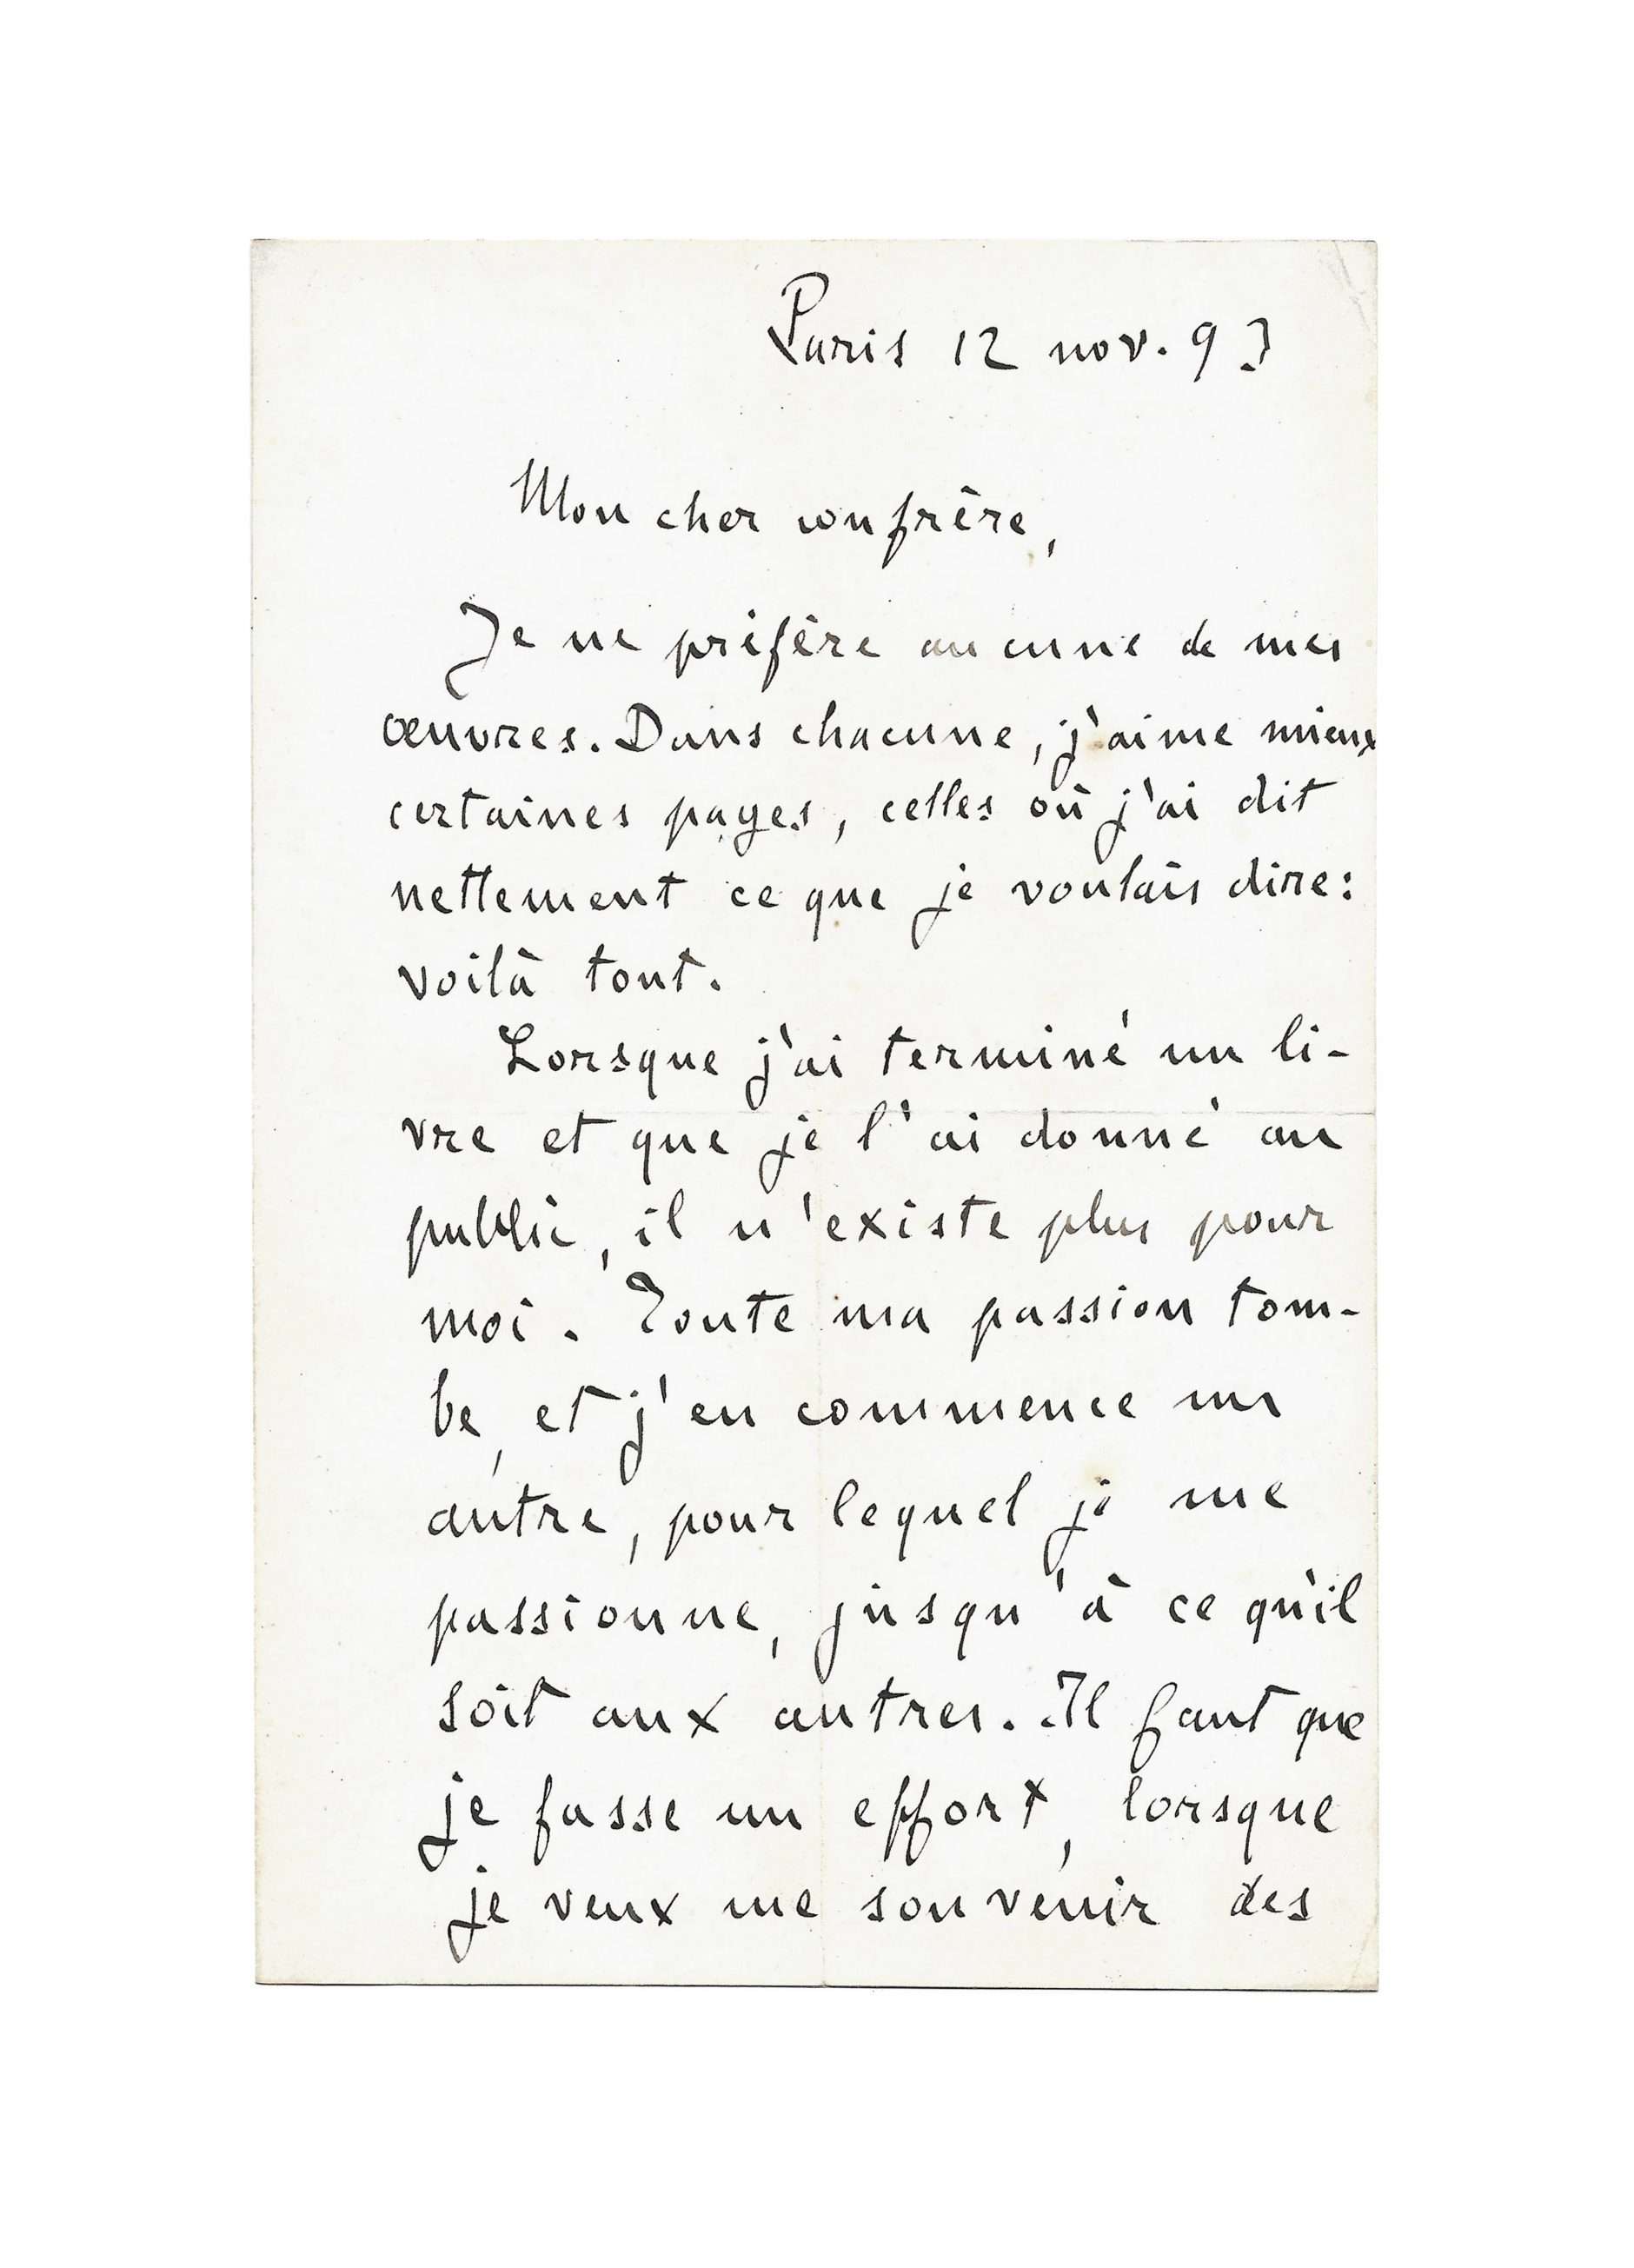 Paris 12 nov. 93
Mon cher confrère,
Je ne préfère aucune de mes
œuvres. Dans chacune, j'aime mieux
certaines pages, celles où j'ai dit
nettement ce que je voulais dire:
voilà tout.
Lorsque j'ai terminé un li-
vre et que je l'ai donné au
public, il n'existe plus pour
moi. Toute ma passion tom-
be, et j'en commence un
autre, pour lequel je me
passionne, jusqu'à ce qu'il
soit aux autres. Il faut que
je fasse un effort, lorsque
je veux me souvenir des